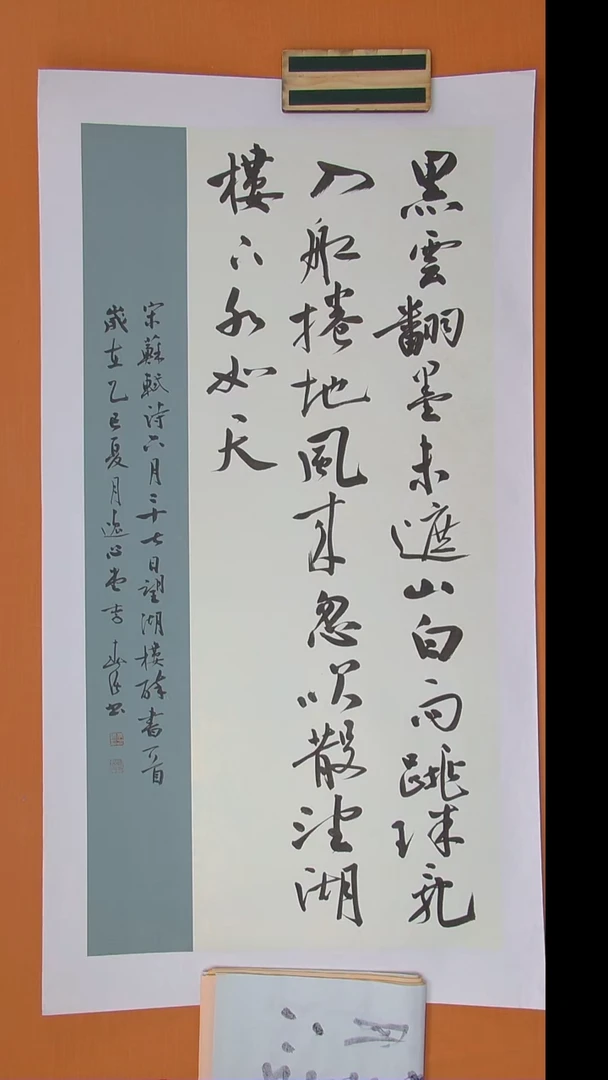 黑雲翻墨未遮山白雨跳珠亂
入船捲地風來忽吹散望湖
樓下水如天
宋蘇軾詩六月二十七日望湖樓醉書一首
歲在乙巳夏月逸心堂書